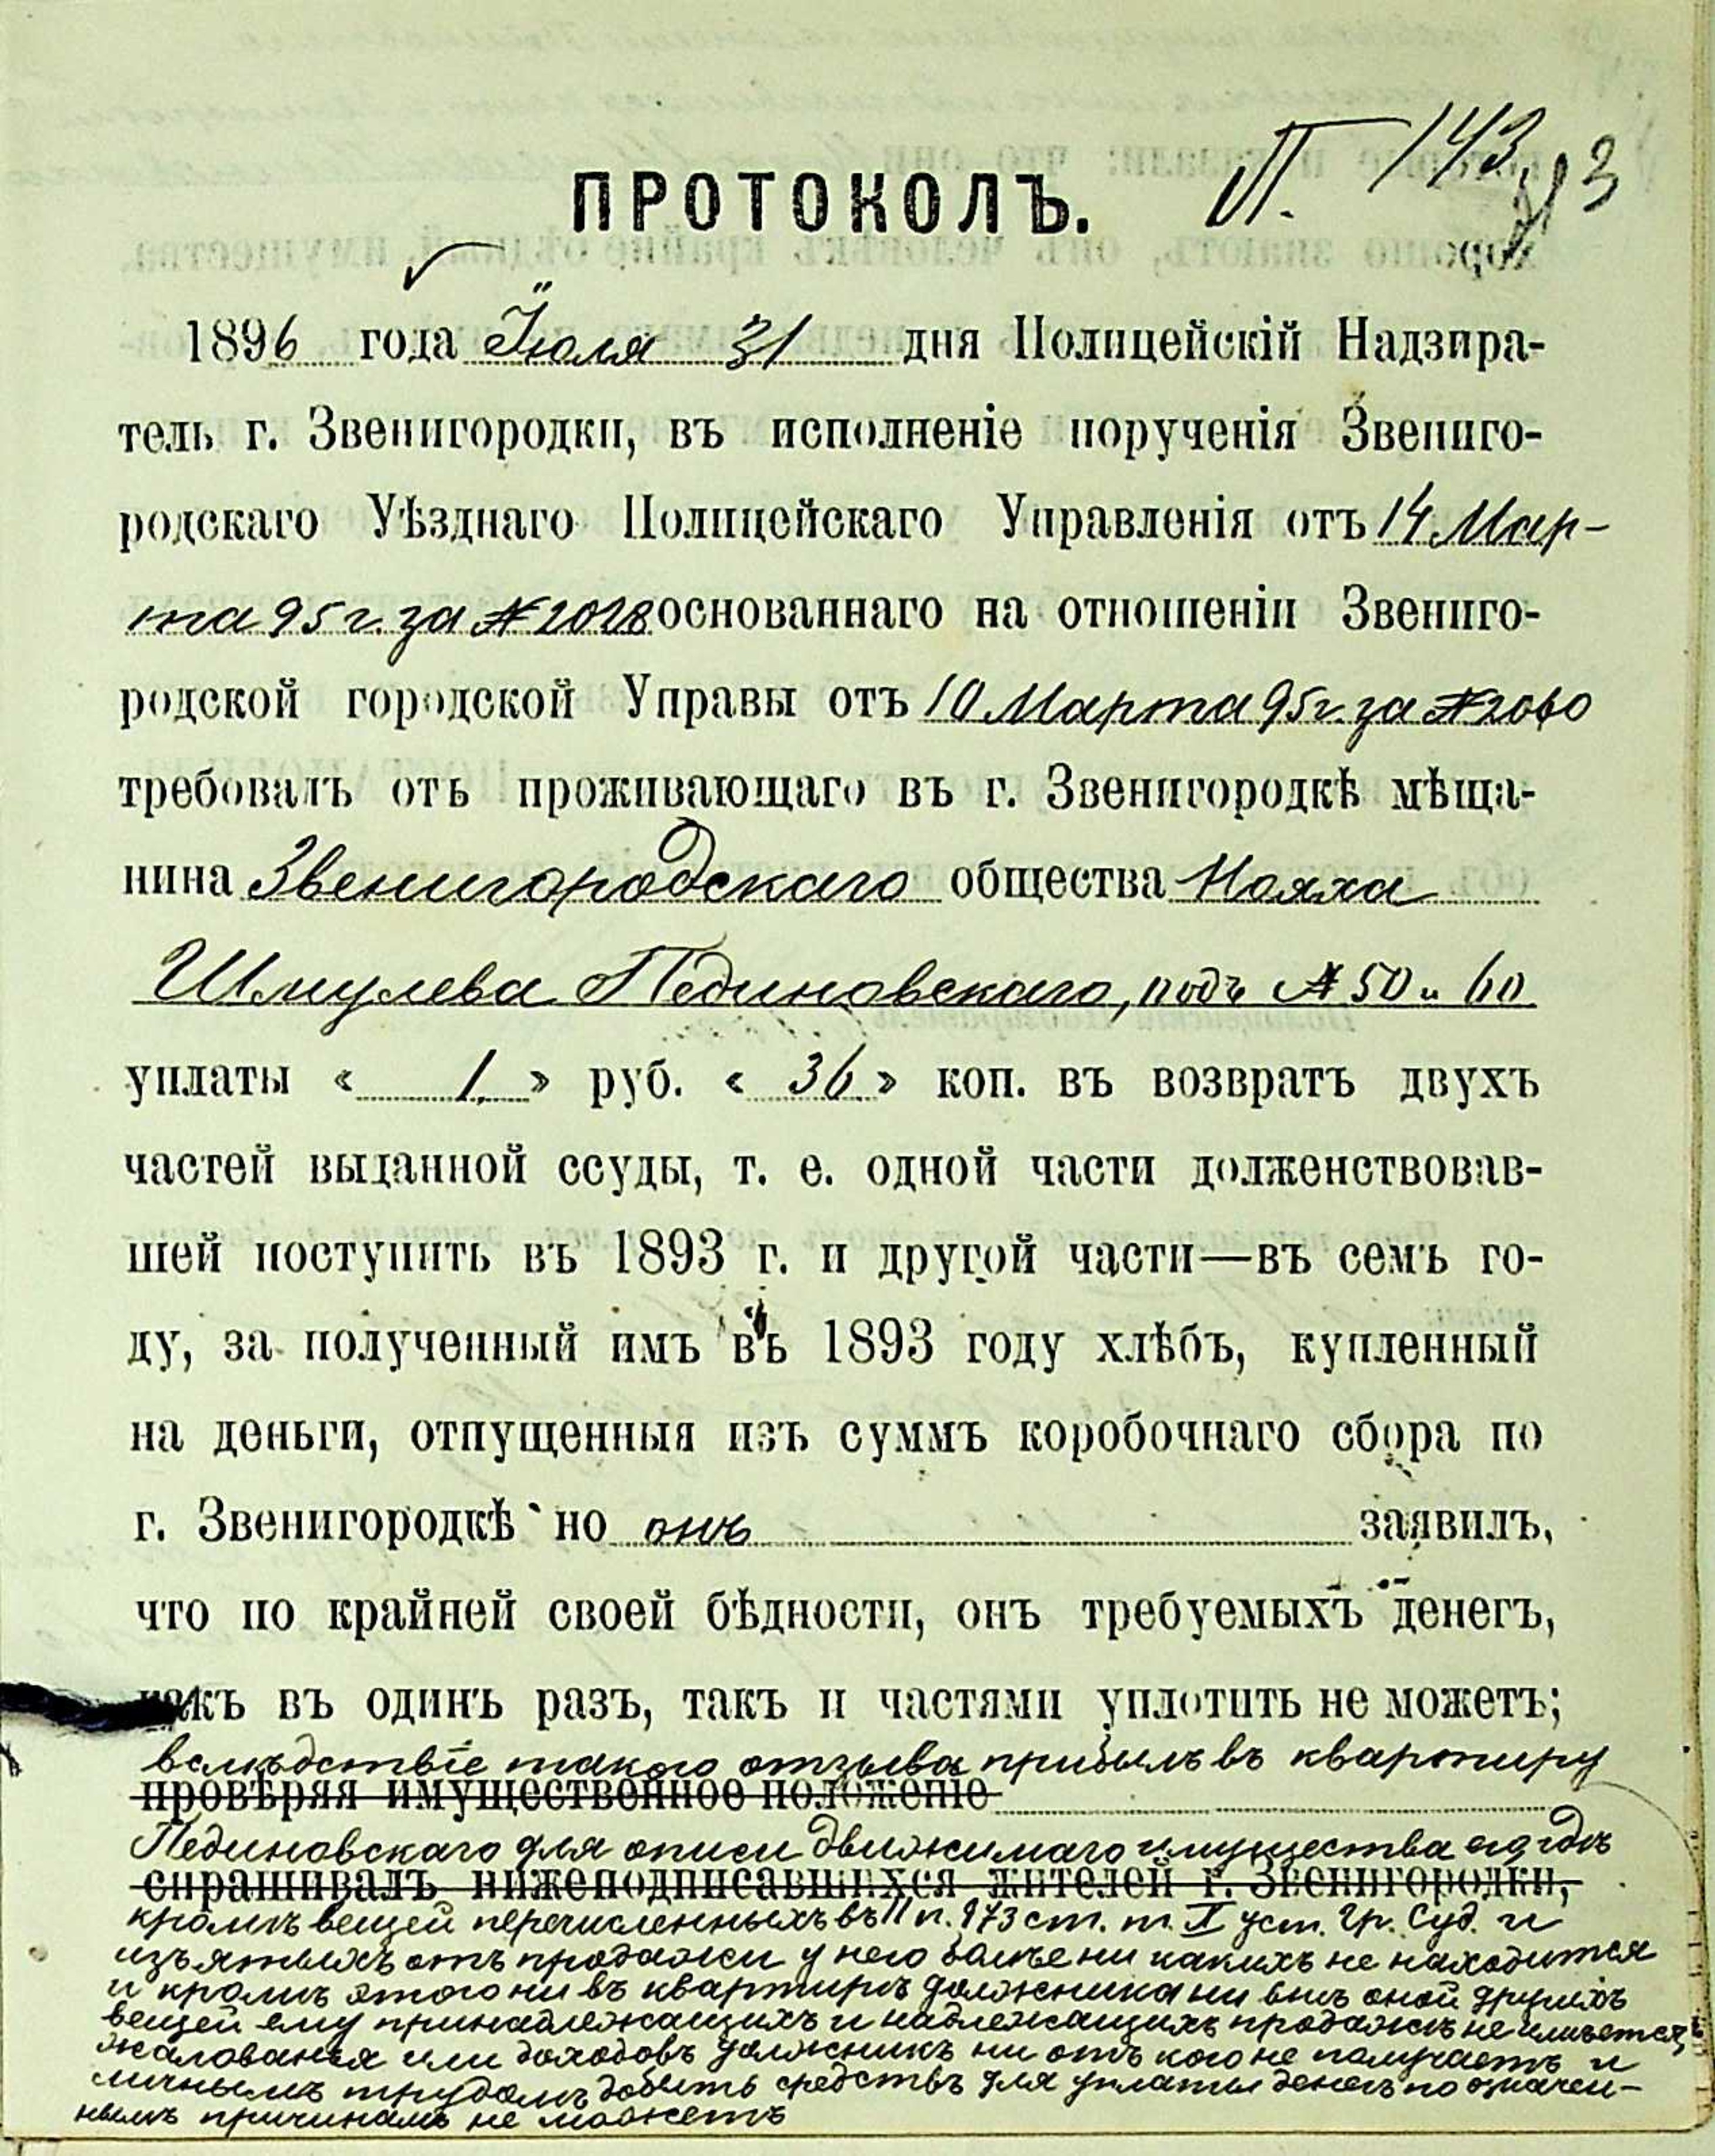 П. 143 3
ПРОТОКОЛЪ.
1896 года Іюля 31 дня Полицейскій Надзира-
тель г. Звенигородки, въ исполненіе порученія Звениго-
родскаго Уѣзднаго Полицейскаго Управленія отъ 14 Мар-
та 95 г. за № 2028 основаннаго на отношеніи Звениго-
родской городской Управы отъ 10 Марта 95 г. за № 2060
требовалъ отъ проживающаго въ г. Звенигородкѣ мѣща-
нина Звенигородскаго общества Нояха
Шмулева Пединовскаго, подъ № 50 и 60
уплаты « 1. » руб. « 36 » коп. въ возвратъ двухъ
частей выданной ссуды, т. е. одной части долженствовав-
шей поступить въ 1893 г. и другой части—въ семъ го-
ду, за полученный имъ въ 1893 году хлѣбъ, купленный
на деньги, отпущенныя изъ суммъ коробочнаго сбора по
г. Звенигородкѣ но онъ заявилъ,
что по крайней своей бѣдности, онъ требуемыхъ денегъ,
какъ въ одинъ разъ, такъ и частями уплотить не можетъ;
вслѣдствіе такого отзыва прибылъ въ квартиру
провѣряя имущественное положеніе
Пединовскаго для описи движимаго имущества его гдѣ
спрашивалъ нижеподписавшихся жителей г. Звенигородки,
кромѣ вещей перечисленныхъ въ 11 п. 973 ст. т. X уст. Гр. Суд. и
изъятыхъ отъ продажи у него болѣе ни какихъ не находится
и кромѣ этого ни въ квартирѣ должника ни внѣ оной другихъ
вещей ему принадлежащихъ и надлежащихъ продажѣ не имѣется,
жалованья или доходовъ должникъ ни отъ кого не получаетъ и
личнымъ трудомъ добыть средствъ для уплаты денегъ по означен-
нымъ причинамъ не можетъ